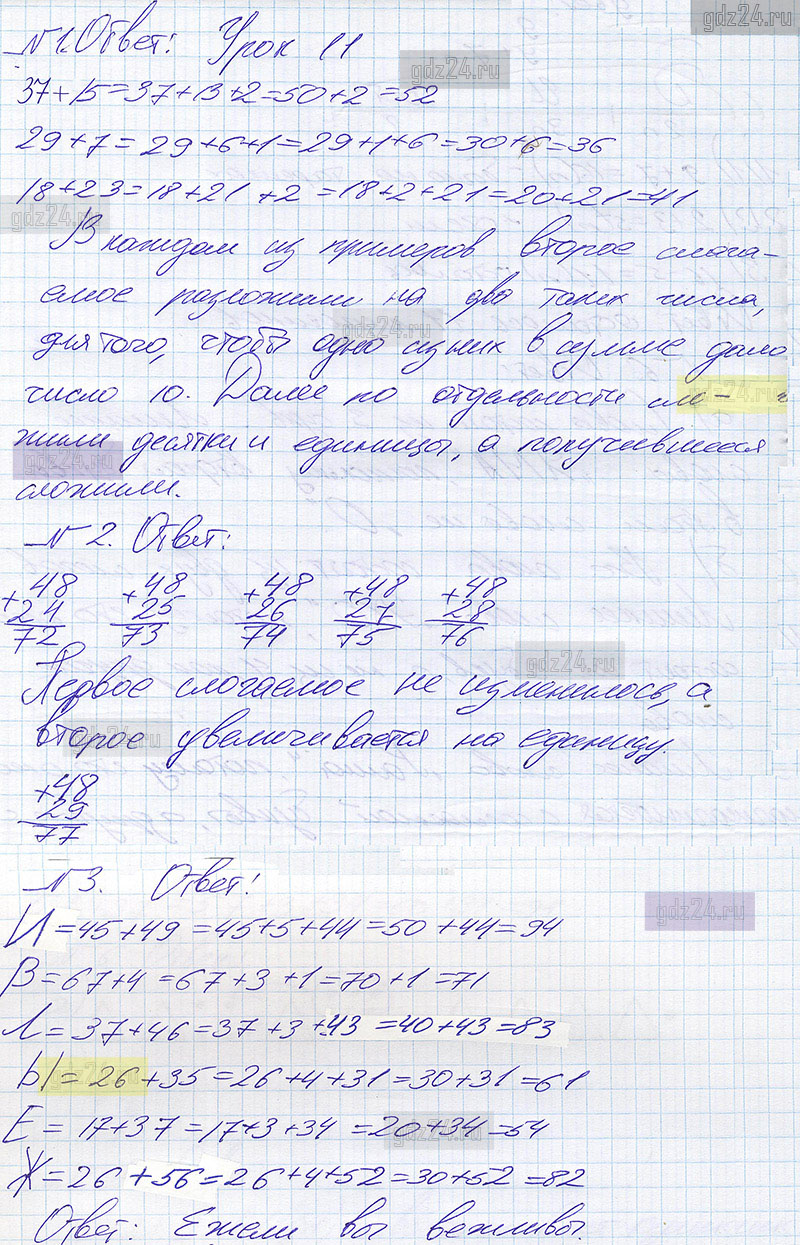 gdz24.ru
№1. Ответ: Урок 11
gdz24.ru
37+15=37+13+2=50+2=52
29+7=29+6+1=29+1+6=30+6=36
18+23=18+21+2=18+2+21=20+21=41
gdz24.ru
В каждом из примеров второе слага-
емое разложили на два таких числа,
gdz24.ru
для того, чтобы одно из них в сумме дало
число 10. Далее по отдельности сло-
gdz24.ru
жили десятки и единицы, а получившееся
gdz24.ru
сложили.
№2. Ответ:
+48 +48 +48 +48 +48
24 25 26 27 28
72 73 74 75 76
gdz24.ru
Первое слагаемое не изменилось, а
второе увеличивается на единицу.
gdz24.ru
+48
29
77
№3. Ответ:
И=45+49=45+5+44=50+44=94
gdz24.ru
В=67+4=67+3+1=70+1=71
Л=37+46=37+3+43=40+43=83
Ы=26+35=26+4+31=30+31=61
gdz24.ru
Е=17+37=17+3+34=20+34=54
gdz24.ru
Ж=26+56=26+4+52=30+52=82
Ответ: Ежели вы вежливы.